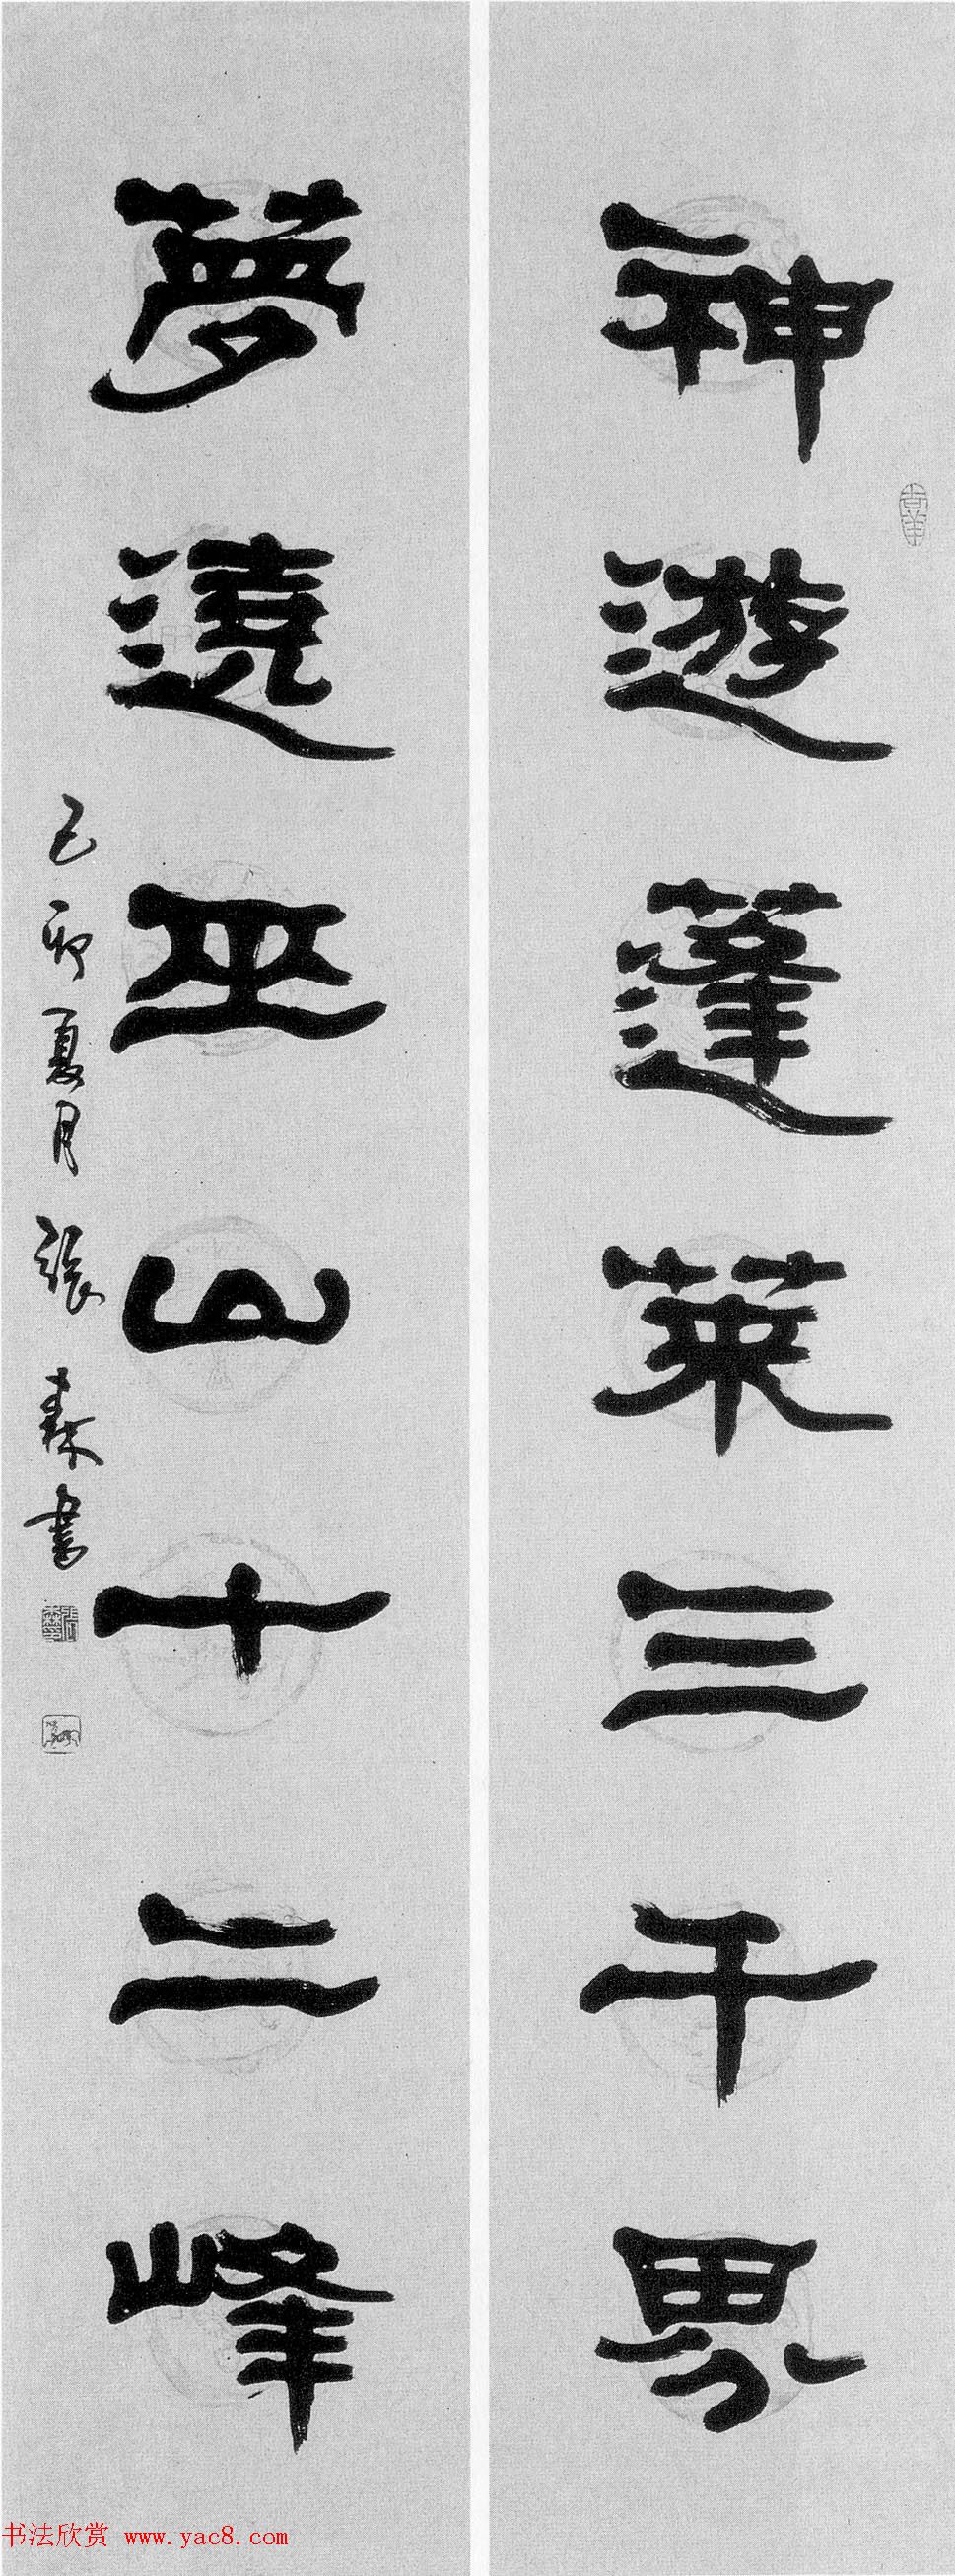 神遊蓬萊三千界
夢遶巫山十二峰
己卯夏月張森書
书法欣赏 www.yac8.com